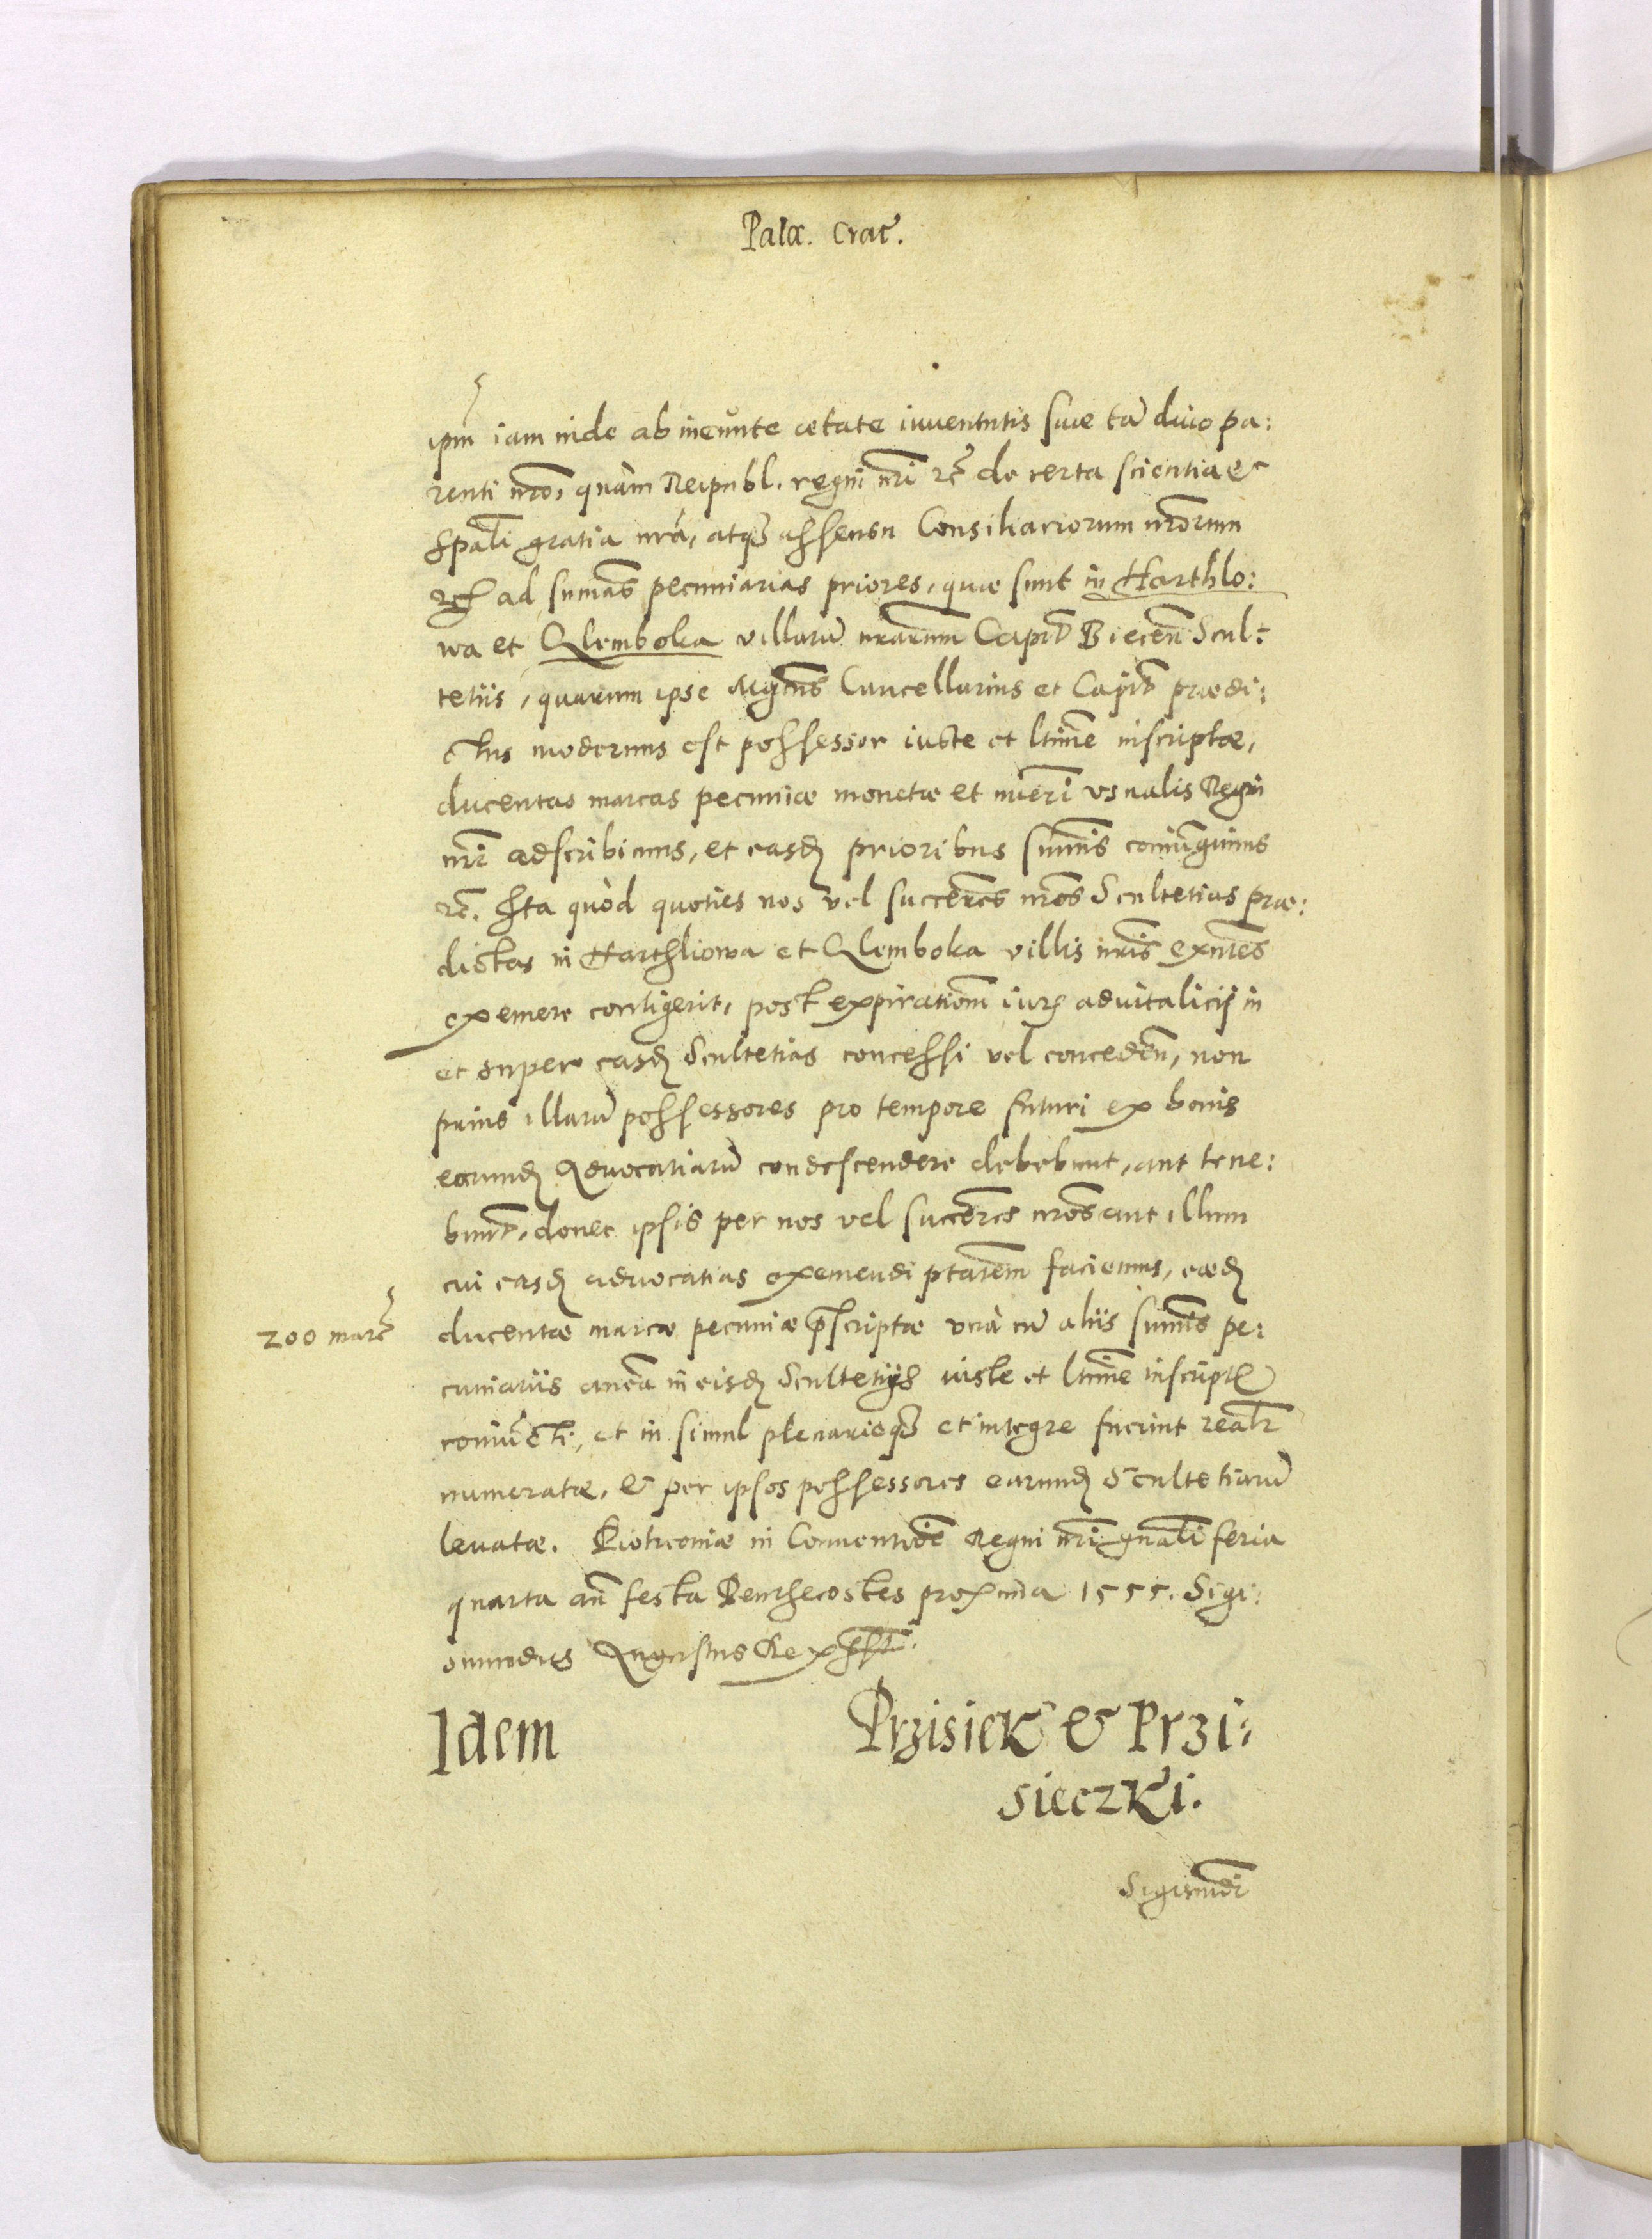 Pala. Crac.
ipm iam inde ab ineunte ætate iuuentutis suæ tã diuo pa:
renti nro, quàm Reipubl. regni nri rc̃ de certa scientia et
spali gratia nrã, atq3 assensu Consiliariorum nrorum
rc̃ ad sumas pecuniarias priores, quæ sunt in Harthlo:
wa et Glemboka villarũ nrarum Capit Biecen̄ Scul:
tetiis, quarum ipse Mgcus Cancellarius et Capit prædi:
ctus modernus est possessor iuste et ltime inscriptæ,
ducentas marcas pecuniæ monetæ et nũeri usualis Regni
nri adscribimus, et easd prioribus sum̄is coniũgimus
rc̃. Ita quòd quoties nos vel succeres nros Scultetias præ:
dictas in Harthliowa et Glemboka villis nris exn̄tes
exemere contigerit, post expirationem iuris aduitalicij in
et super easd Scultetias concessi vel conceden̄, non
prius illarũ possessores pro tempore futuri ex bonis
earund Aduocatiarũ condescendere debebunt, aut tene:
bunt, donec ipsis per nos vel succeres nros aut illum
cui easd aduocatias exemendi ptatem faciemus, eæd
200 marc̃ ducentæ marcæ pecuniæ pscriptæ unà cũ aliis sum̄is pe:
cuniariis antea in eisd Scultetiis iuste et ltime inscriptis
coniũcti, et in simul plenarieq3 et integre fuerint realr
numeratæ, et per ipsos possessores earund Scultetiarũ
leuatæ. Piotrconiæ in Conuentiõe Regni nri gnali feria
quarta an̄ festa Penthecostes proxima 1555. Sigi:
smundus Augustus Rex
Idem Przisiek et Przi:
sieczki.
Sigismũdi